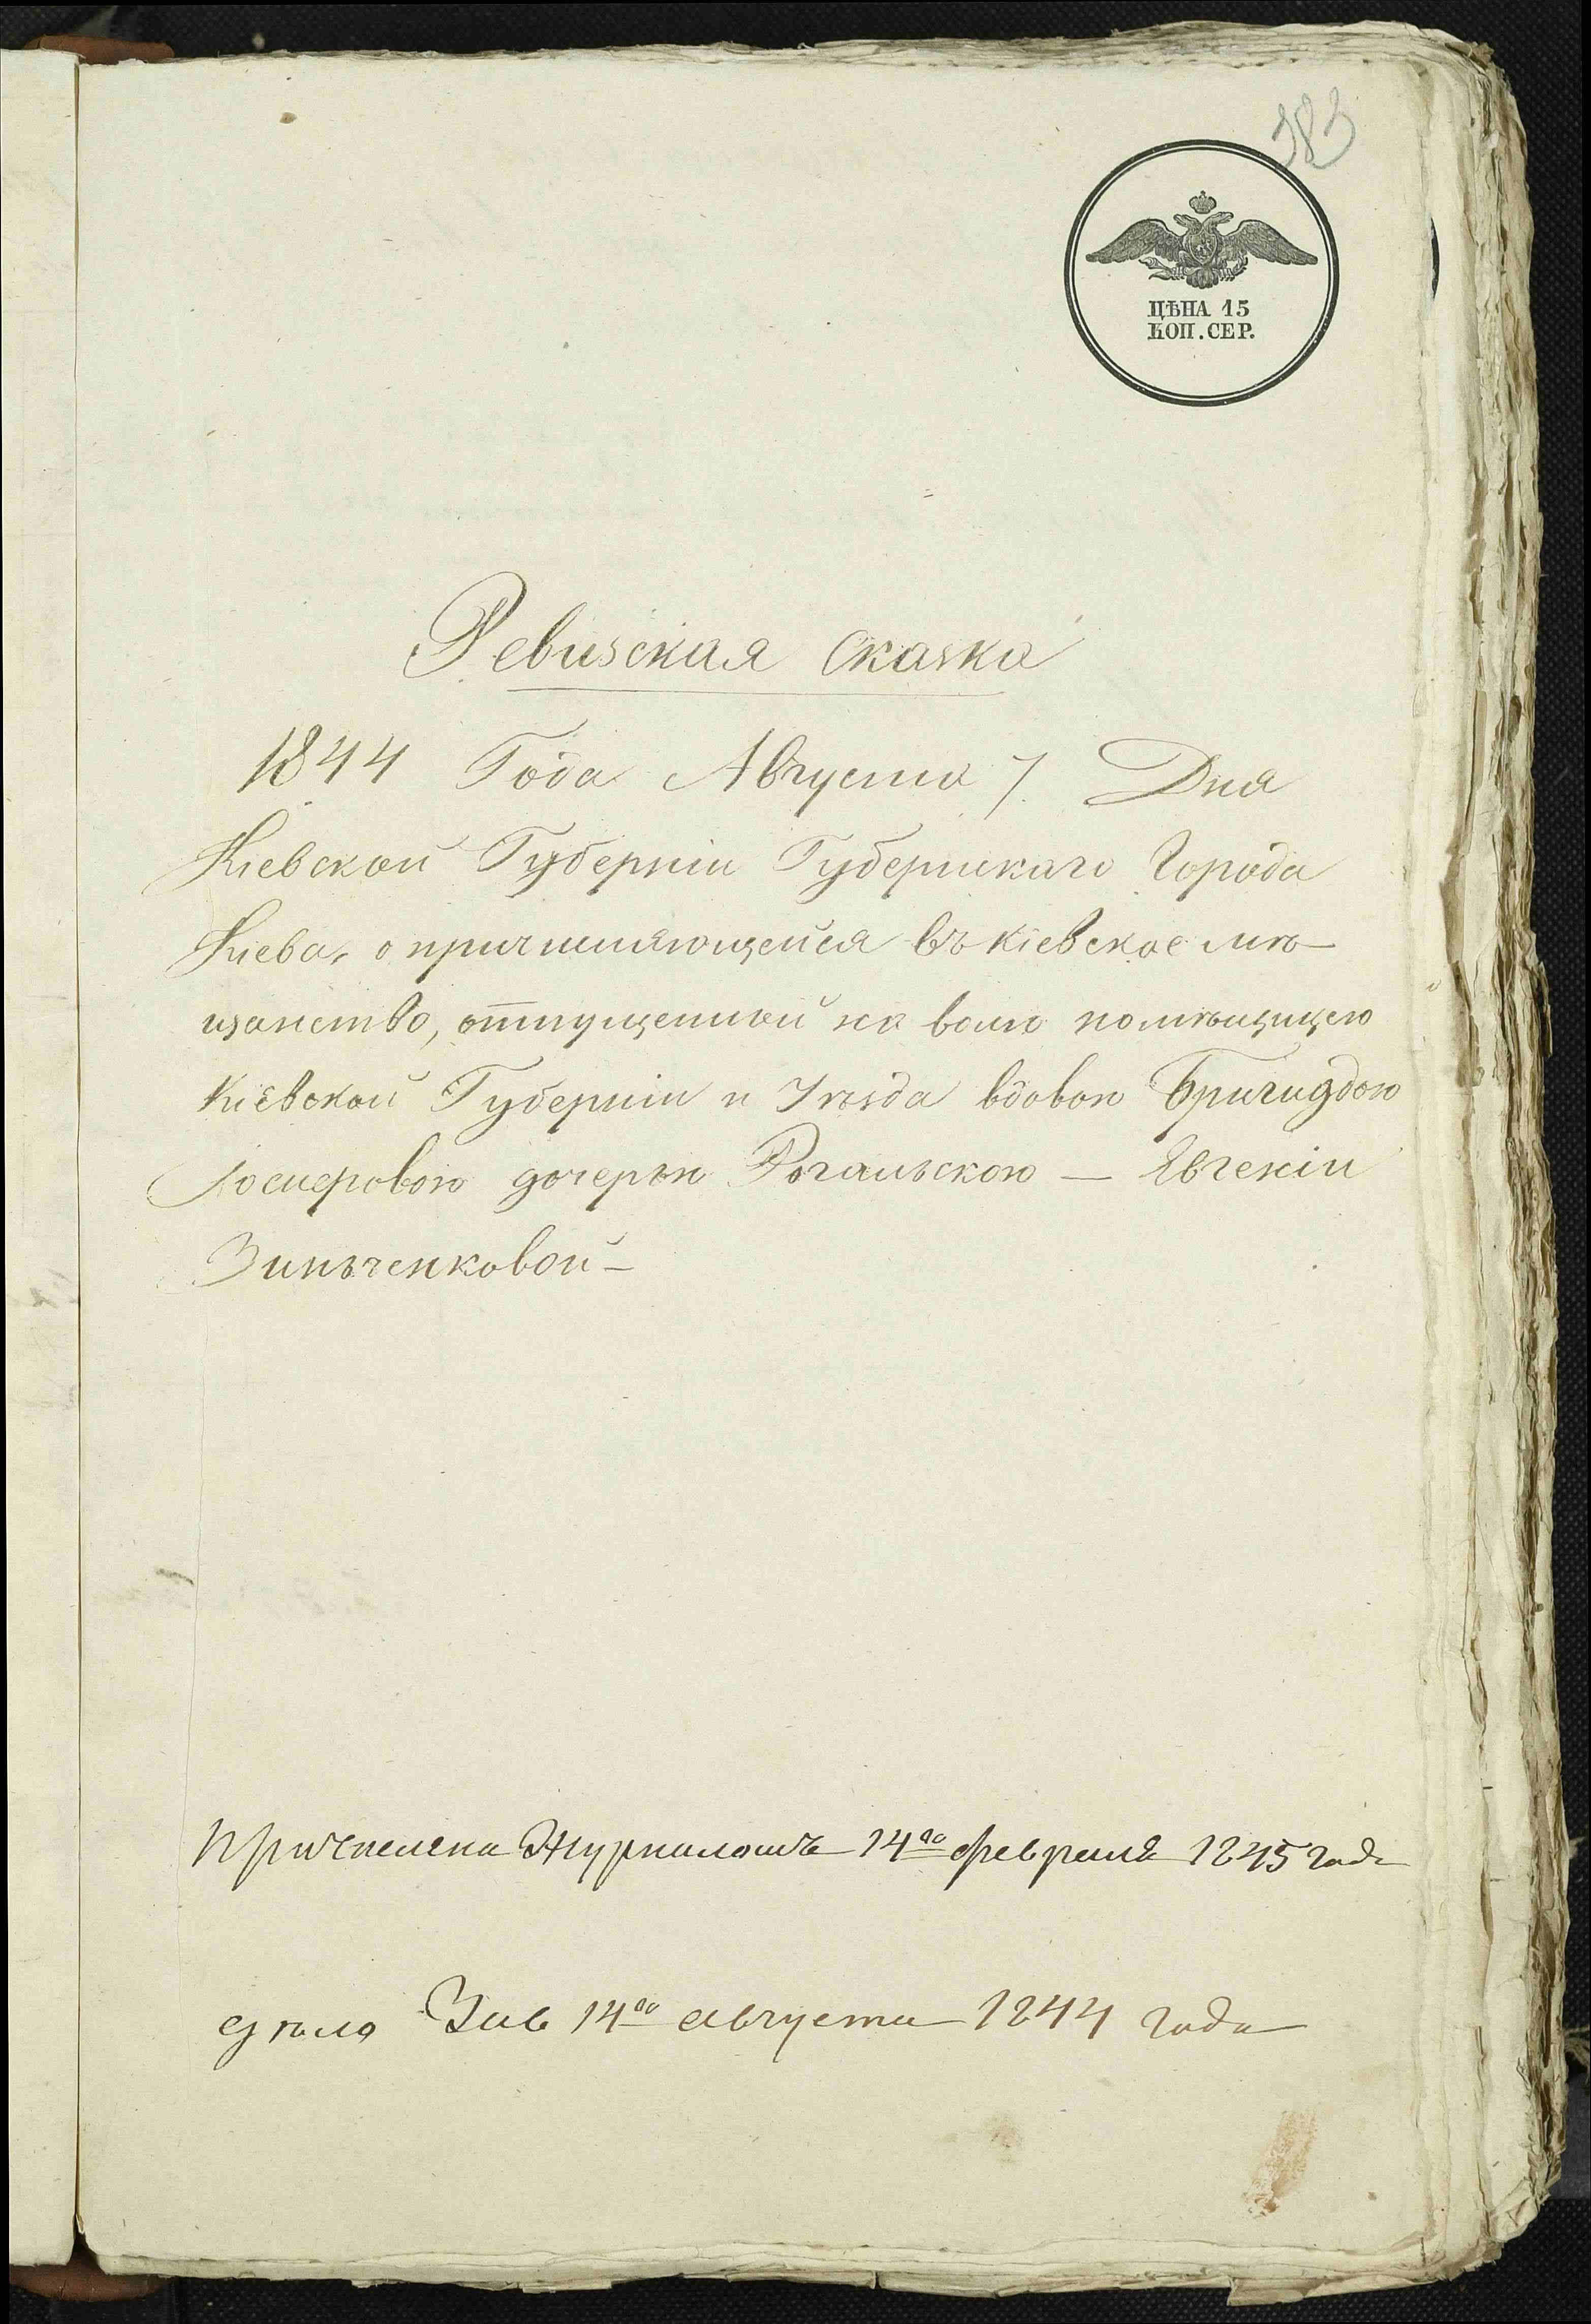 383
ЦѢНА 15
КОП. СЕР.
Ревизская Сказка
1844 Года Августа 7. Дня
Кіевской Губерніи Губернскаго Города
Кіева, о причисляющейся въ кіевское мѣ-
щанство, отпущенной на волю помѣщицею
Кіевской Губерніи и Уѣзда вдовою Бригидою
Іосифовою дочерью Рогальскою — Явгеніи
Зинъченковой —
Причислена Журналомъ 14го февраля 1845 года
дѣло 14го августа 1844 года